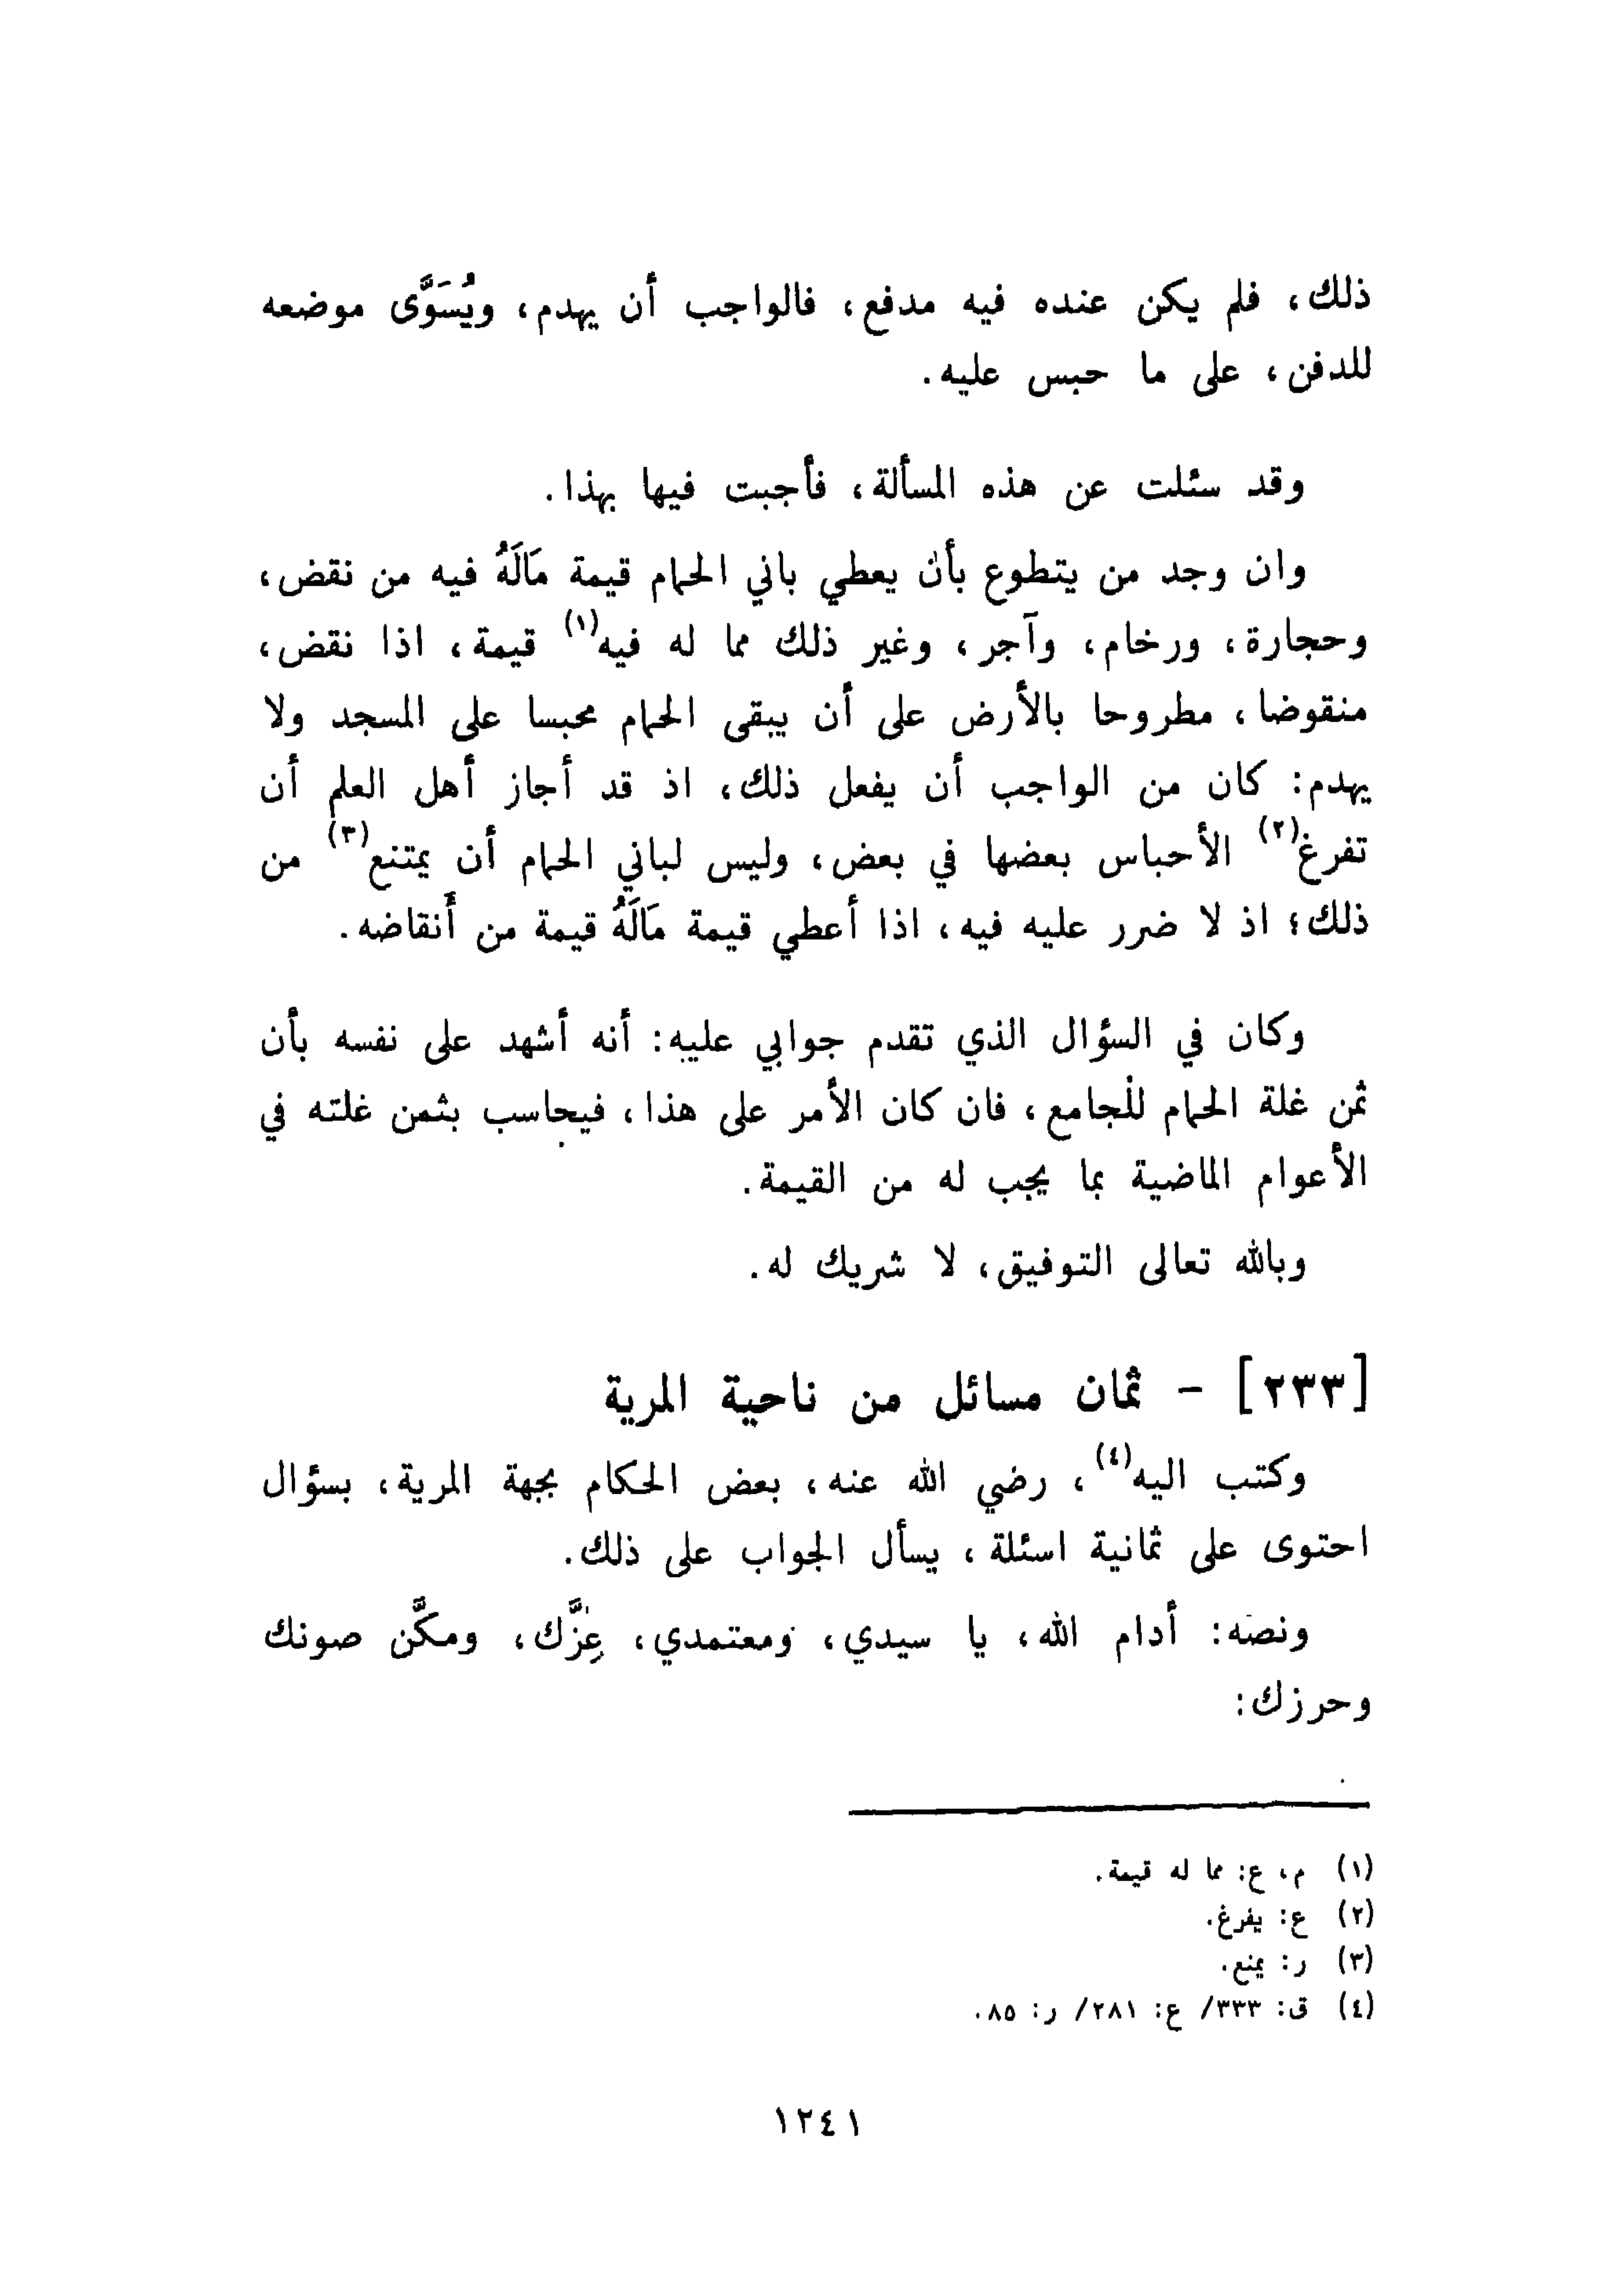 ذلك، فلم يكن عنده فيه مدفع، فالواجب أن يهدم، ويُسَوَّى موضعه
للدفن، على ما حبس عليه.
وقد سئلت عن هذه المسألة، فأجبت فيها بهذا.
وان وجد من يتطوع بأن يعطي باني الحمام قيمة مَالَهُ فيه من نقض،
وحجارة، ورخام، وآجر، وغير ذلك مما له فيه(١) قيمة، اذا نقض،
منقوضا، مطروحا بالأرض على أن يبقى الحمام محبسا على المسجد ولا
يهدم: كان من الواجب أن يفعل ذلك، اذ قد أجاز أهل العلم أن
تفرغ(٢) الأحباس بعضها في بعض، وليس لباني الحمام أن يمتنع(٣) من
ذلك؛ اذ لا ضرر عليه فيه، اذا أعطي قيمة مَالَهُ قيمة من أَنقاضه.
وكان في السؤال الذي تقدم جوابي عليه: أنه أشهد على نفسه بأن
ثمن غلة الحمام للجامع، فان كان الأمر على هذا، فيحاسب بثمن غلته في
الأعوام الماضية بما يجب له من القيمة.
وبالله تعالى التوفيق، لا شريك له.
[٢٣٣] - ثمان مسائل من ناحية المرية
وكتب اليه(٤)، رضي الله عنه، بعض الحكام بجهة المرية، بسؤال
احتوى على ثمانية اسئلة، يسأل الجواب على ذلك.
ونصه: أدام الله، يا سيدي، ومعتمدي، عِزَّك، ومكَّن صونك
وحرزك:
(١) م، ع: مما له قيمة.
(٢) ع: يفرغ.
(٣) ر: يمنع.
(٤) ق: ٣٣٣/ ع: ٢٨١/ ر: ٨٥.
١٢٤١